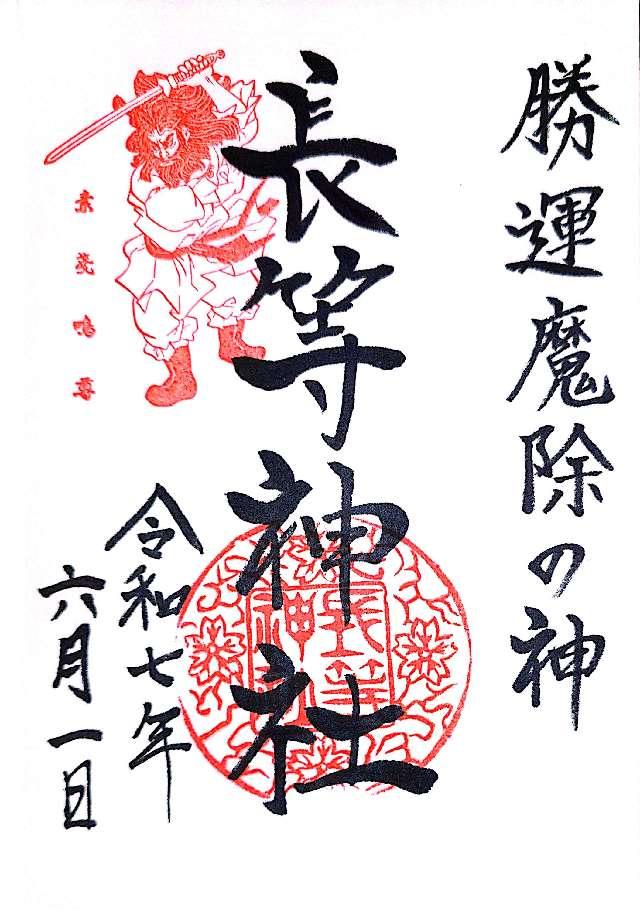 勝運魔除の神
長等神社
長等神社
令和七年
六月一日